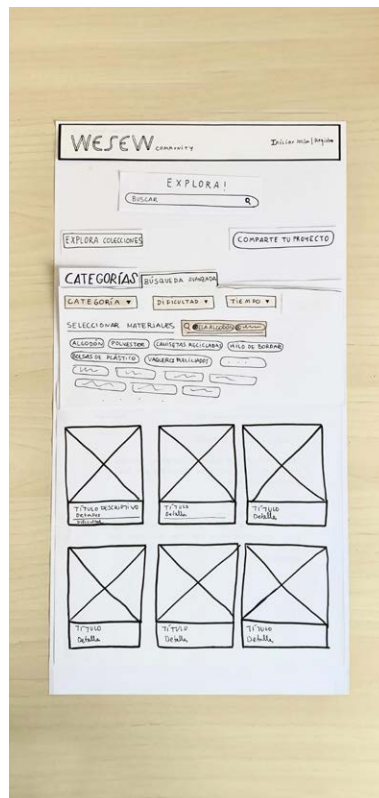 WESEW COMMUNITY
Iniciar sesión | Registro
EXPLORA!
BUSCAR
EXPLORA COLECCIONES
COMPARTE TU PROYECTO
CATEGORÍAS BÚSQUEDA AVANZADA
CATEGORÍA ▾ DIFICULTAD ▾ TIEMPO ▾
SELECCIONAR MATERIALES
ALGODÓN POLYESTER CAMISETAS RECICLADAS HILO DE BORDAR
BOLSAS DE PLÁSTICO VAQUEROS RECICLADOS
TÍTULO DESCRIPTIVO
Detalles
TÍTULO
Detalles
TÍTULO
Detalles
TÍTULO
Detalles
TÍTULO
Detalles
TÍTULO
Detalles